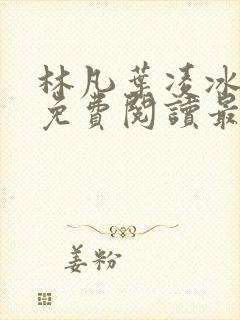 林凡葉凌冰
免費閱讀最
姜粉